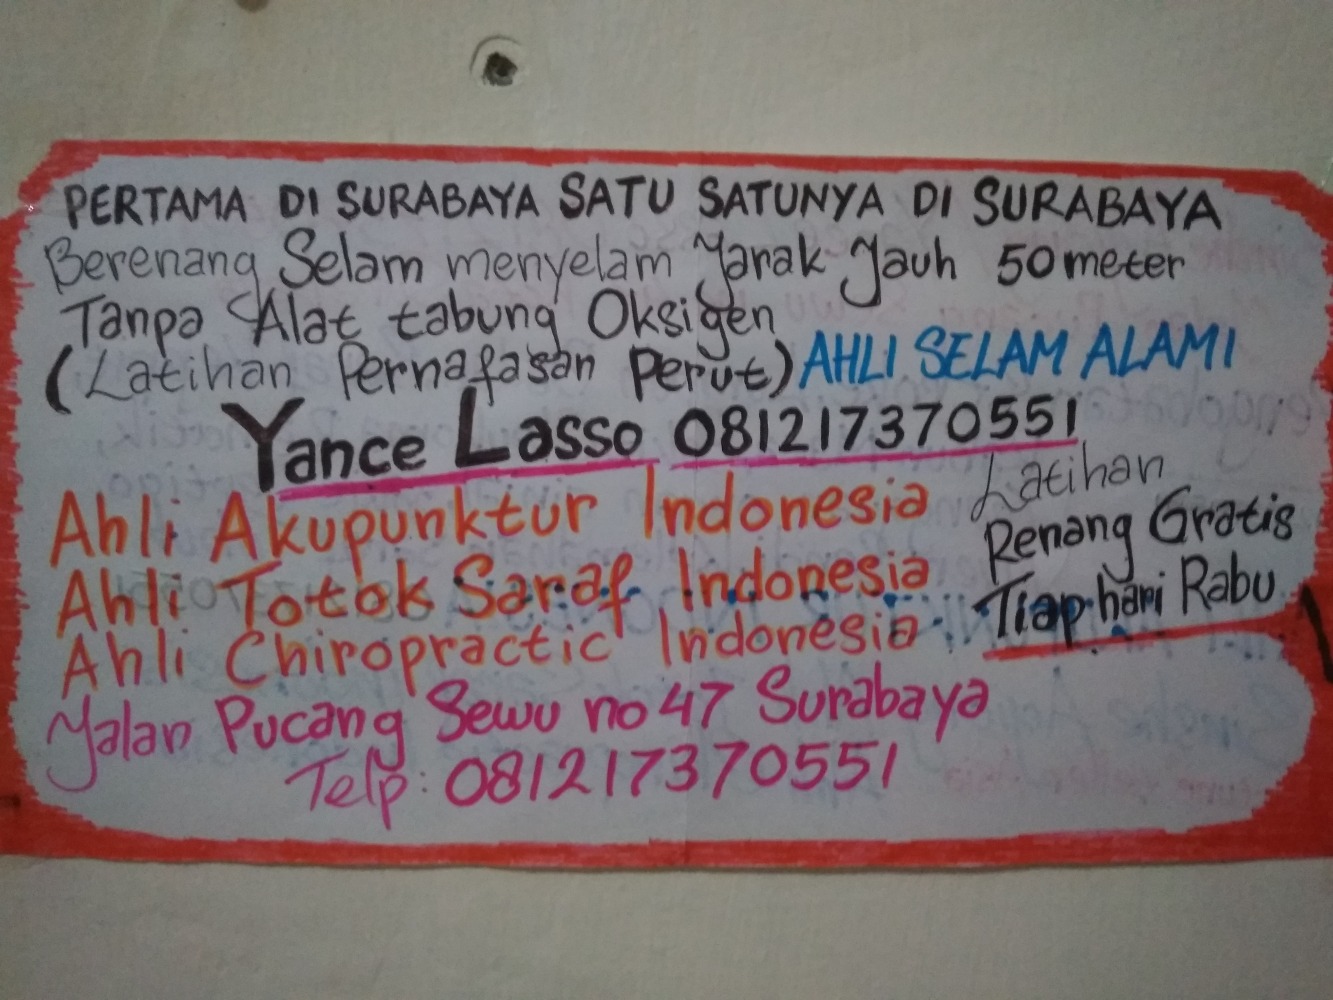 PERTAMA DI SURABAYA SATU SATUNYA DI SURABAYA
Berenang Selam menyelam Jarak Jauh 50 meter
Tanpa Alat tabung Oksigen
(Latihan Pernafasan Perut) AHLI SELAM ALAMI
Yance Lasso 081217370551
Ahli Akupunktur Indonesia
Ahli Totok Saraf Indonesia
Ahli Chiropractic Indonesia
Latihan
Renang Gratis
Tiap hari Rabu
Jalan Pucang Sewu no 47 Surabaya
Telp: 081217370551